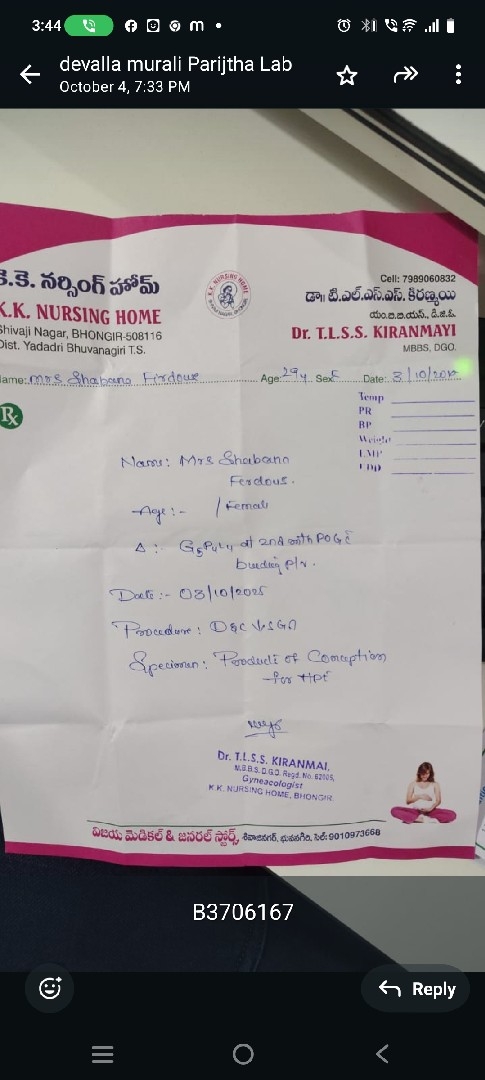 3:44
devalla murali Parijtha Lab
October 4, 7:33 PM
కె.కె. నర్సింగ్ హోమ్
K.K. NURSING HOME
Shivaji Nagar, BHONGIR-508116
Dist. Yadadri Bhuvanagiri T.S.
K.K. NURSING HOME
Cell: 7989060832
డా॥ టి.ఎల్.ఎస్.ఎస్. కిరణ్మయి
యం.బి.బి.యస్., డి.జి.ఓ.
Dr. T.L.S.S. KIRANMAYI
MBBS, DGO.
Name: Mrs Shabana Firdous Age: 29y Sex F Date: 3/10/
Rx
Temp
PR
BP
Weight
LMP
EDD
Name: Mrs Shabana
Ferdous.
Age:- / Female
Δ:- at 2nd mth POG c
p/v.
Date:- 03/10/2025
Procedure: D&C
Specimen: Products of Conception
for HPE
Dr. T.L.S.S. KIRANMAI,
M.B.B.S. D.G.O. Regd. No. 62005,
Gyneacologist
K.K. NURSING HOME, BHONGIR
విజయ మెడికల్ & జనరల్ స్టోర్స్, శివాజినగర్, భువనగిరి, సెల్: 9010973668
B3706167
Reply